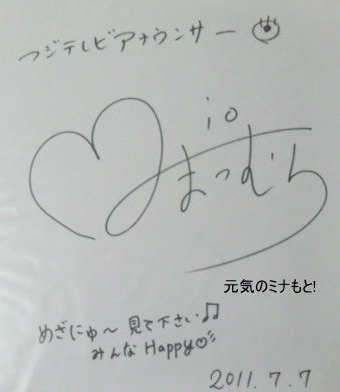 フジテレビアナウンサー
io
まつむら
元気のミナもと!
めざにゅ〜 見て下さい♫
みんな Happy♡
2011.7.7